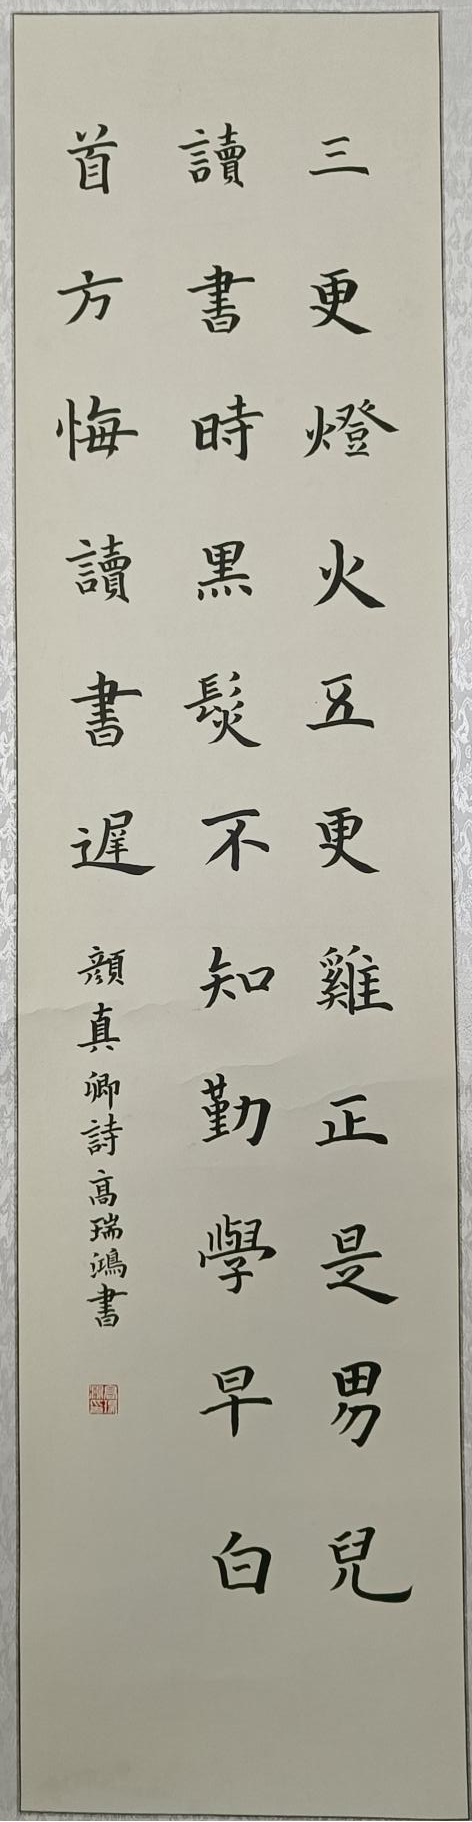 三更燈火五更雞正是男兒
讀書時黑髮不知勤學早白
首方悔讀書遲
顏真卿詩高瑞鴻書